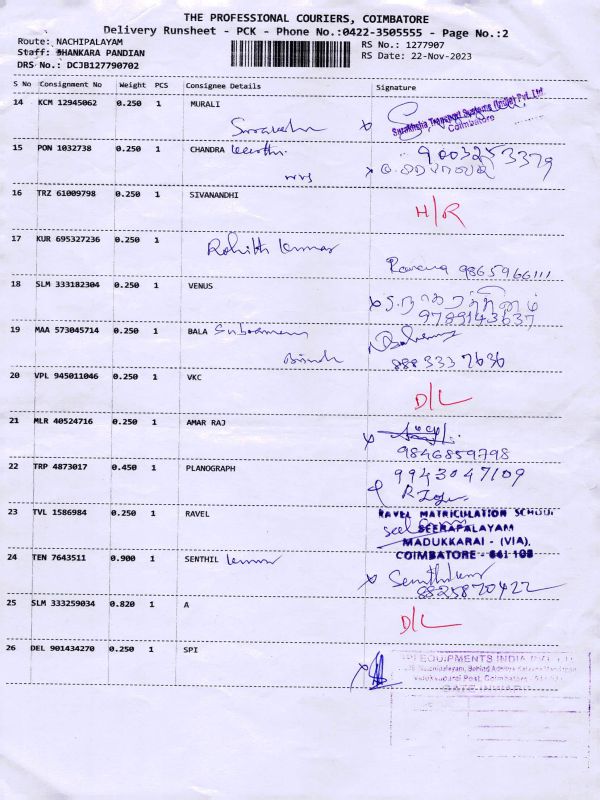 THE PROFESSIONAL COURIERS, COIMBATORE
Delivery Runsheet - PCK - Phone No.:0422-3505555 - Page No.:2
Route: NACHIPALAYAM RS No.: 1277907
Staff: BHANKARA PANDIAN RS Date: 22-Nov-2023
DRS No.: DCJB127790702
S No Consignment No Weight PCS Consignee Details Signature
14 KCM 12945062 0.250 1 MURALI
Coimbatore
15 PON 1032738 0.250 1 CHANDRA 9003253379
16 TRZ 61009798 0.250 1 SIVANANDHI H/R
17 KUR 695327236 0.250 1
Rohith Kumar
9865966111
18 SLM 333182304 0.250 1 VENUS
9789143637
19 MAA 573045714 0.250 1 BALA
888 333 7636
20 VPL 945011046 0.250 1 VKC D/L
21 MLR 40524716 0.250 1 AMAR RAJ
9846859798
22 TRP 4873017 0.450 1 PLANOGRAPH 9943047109
23 TVL 1586984 0.250 1 RAVEL RAVEL MATRICULATION SCHOOL
SEERAPALAYAM
MADUKKARAI - (VIA),
COIMBATORE - 641 105
24 TEN 7643511 0.900 1 SENTHIL Kumar
Senthil Kumar
8825870422
25 SLM 333259034 0.820 1 A D/L
26 DEL 901434270 0.250 1 SPI
EQUIPMENTS INDIA PVT LTD